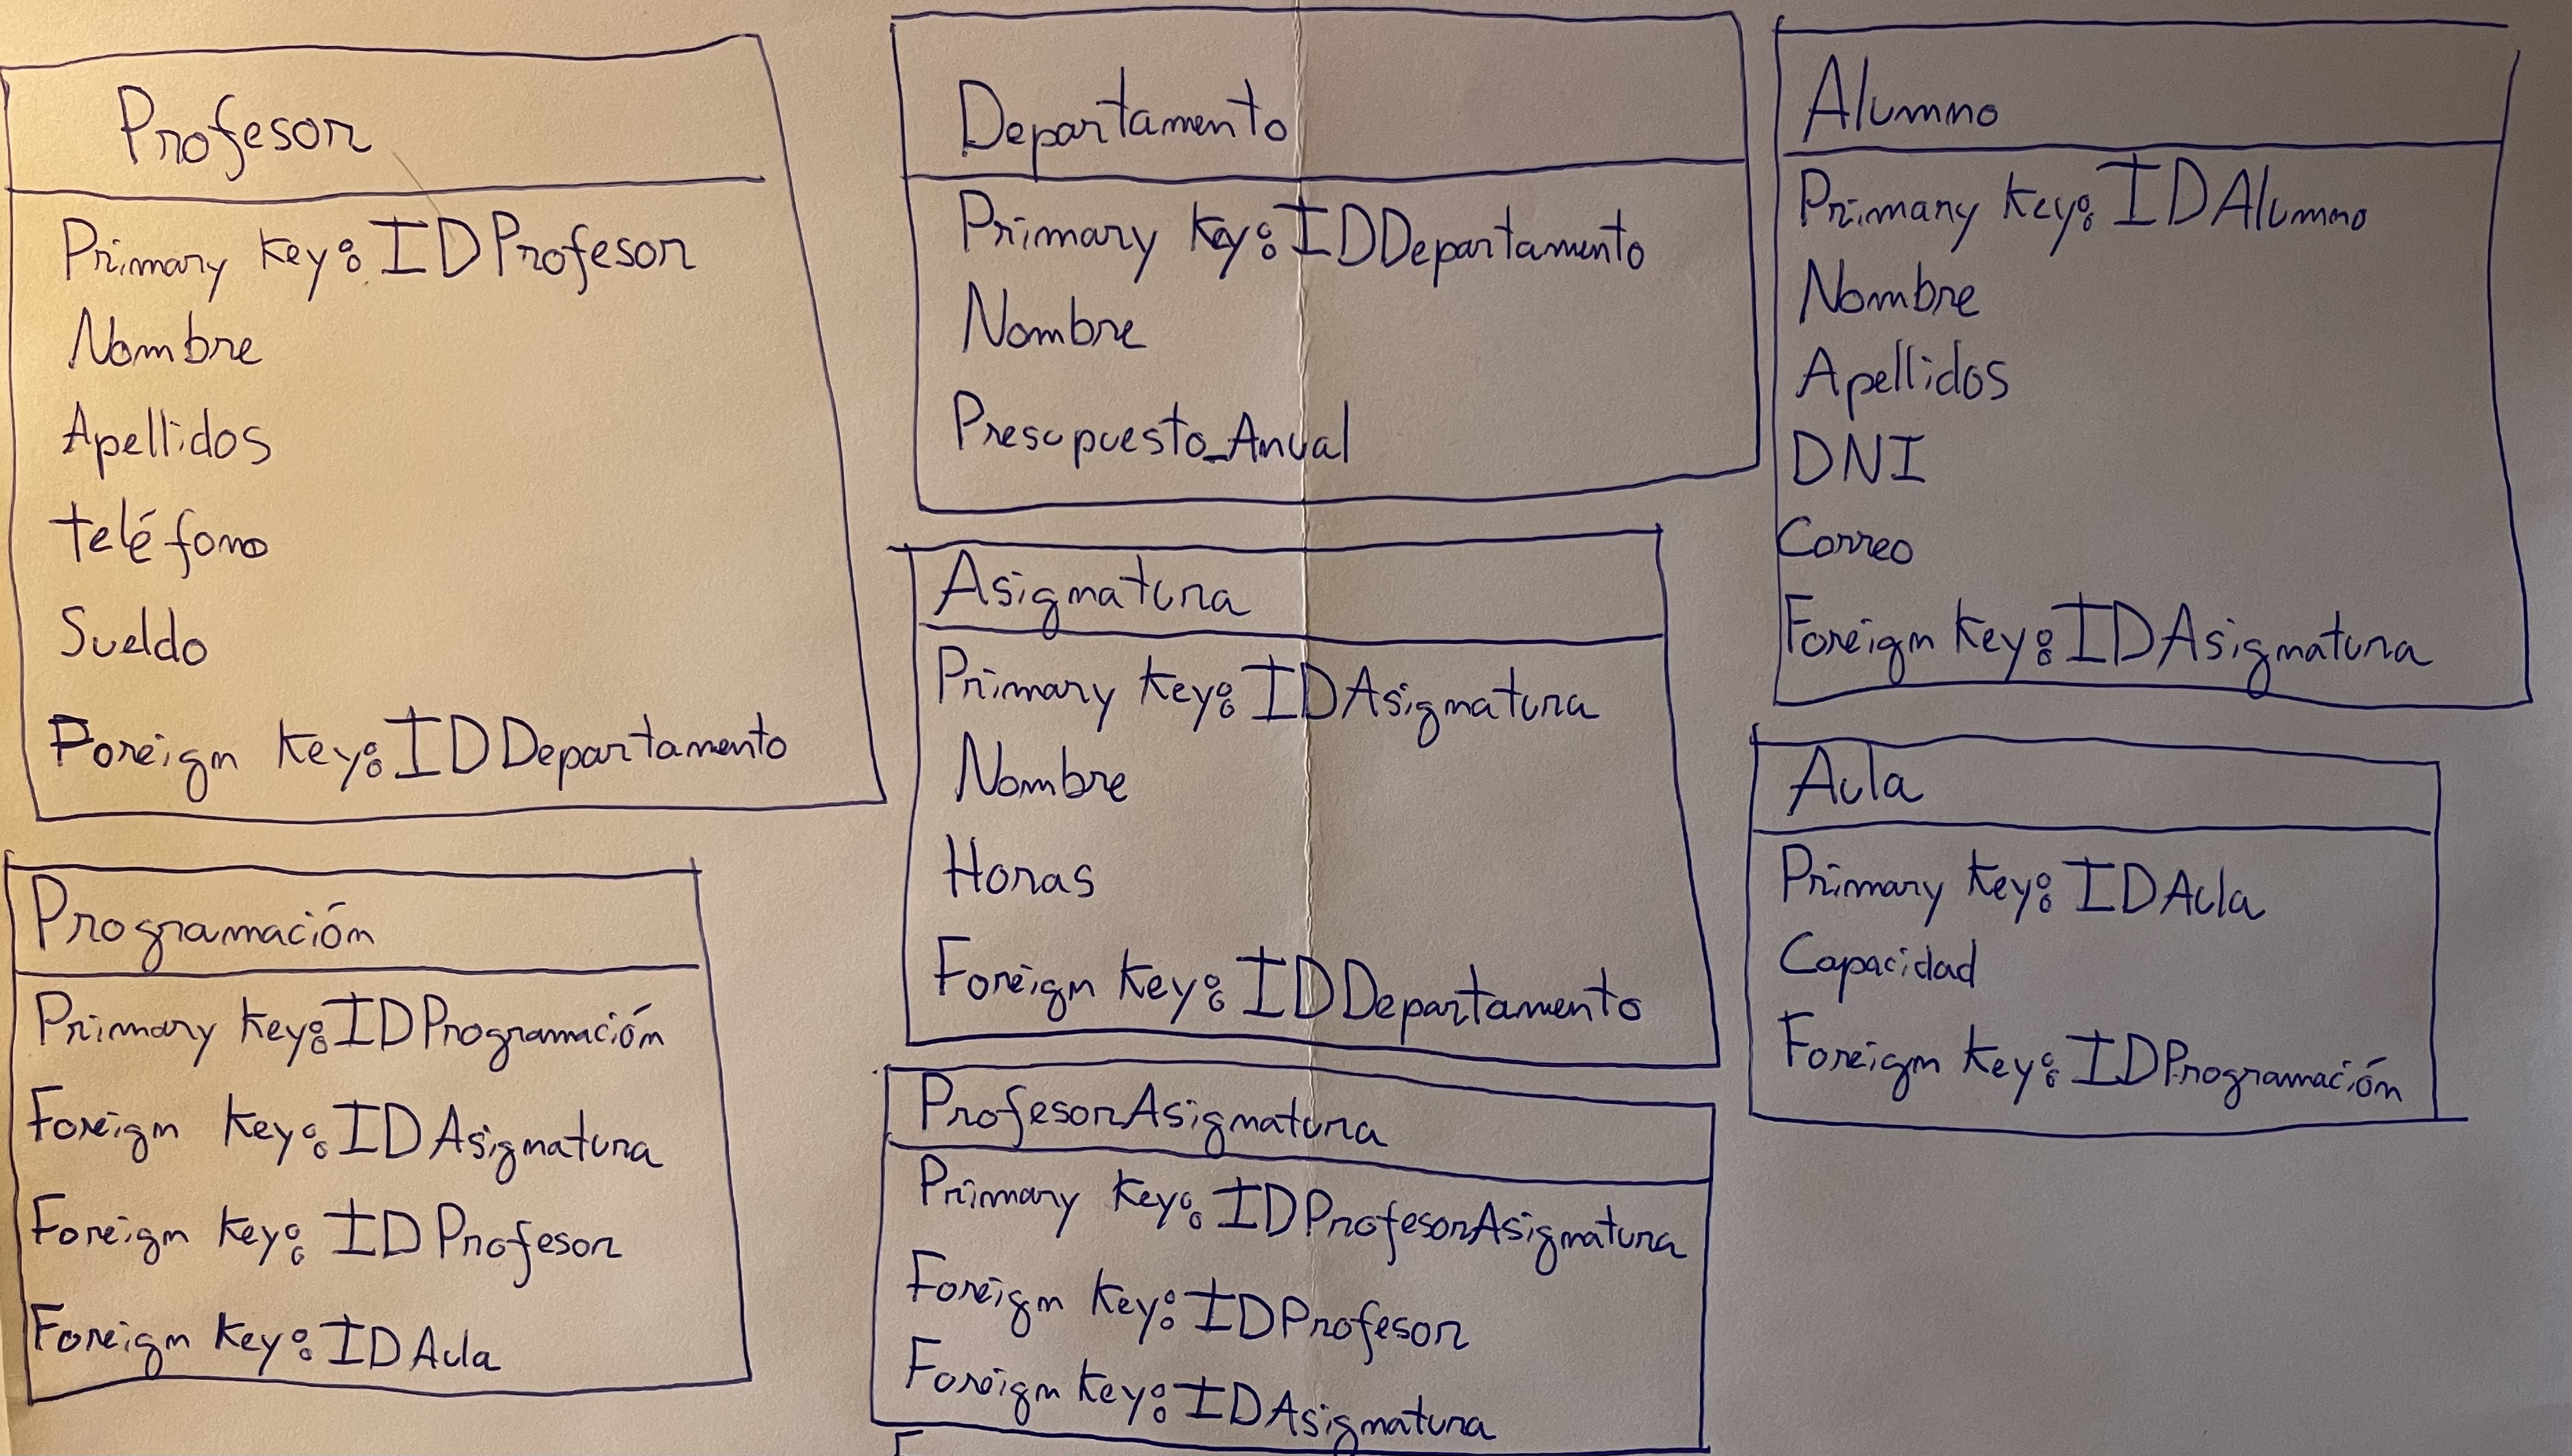 Profesor
Primary Key: IDProfesor
Nombre
Apellidos
teléfono
Sueldo
Foreign Key: IDDepartamento
Programación
Primary Key: IDProgramación
Foreign Key: IDAsignatura
Foreign Key: IDProfesor
Foreign Key: IDAula
Departamento
Primary Key: IDDepartamento
Nombre
Presupuesto_Anual
Asignatura
Primary Key: IDAsignatura
Nombre
Horas
Foreign Key: IDDepartamento
ProfesorAsignatura
Primary Key: IDProfesorAsignatura
Foreign Key: IDProfesor
Foreign Key: IDAsignatura
Alumno
Primary Key: IDAlumno
Nombre
Apellidos
DNI
Correo
Foreign Key: IDAsignatura
Aula
Primary Key: IDAula
Capacidad
Foreign Key: IDProgramación